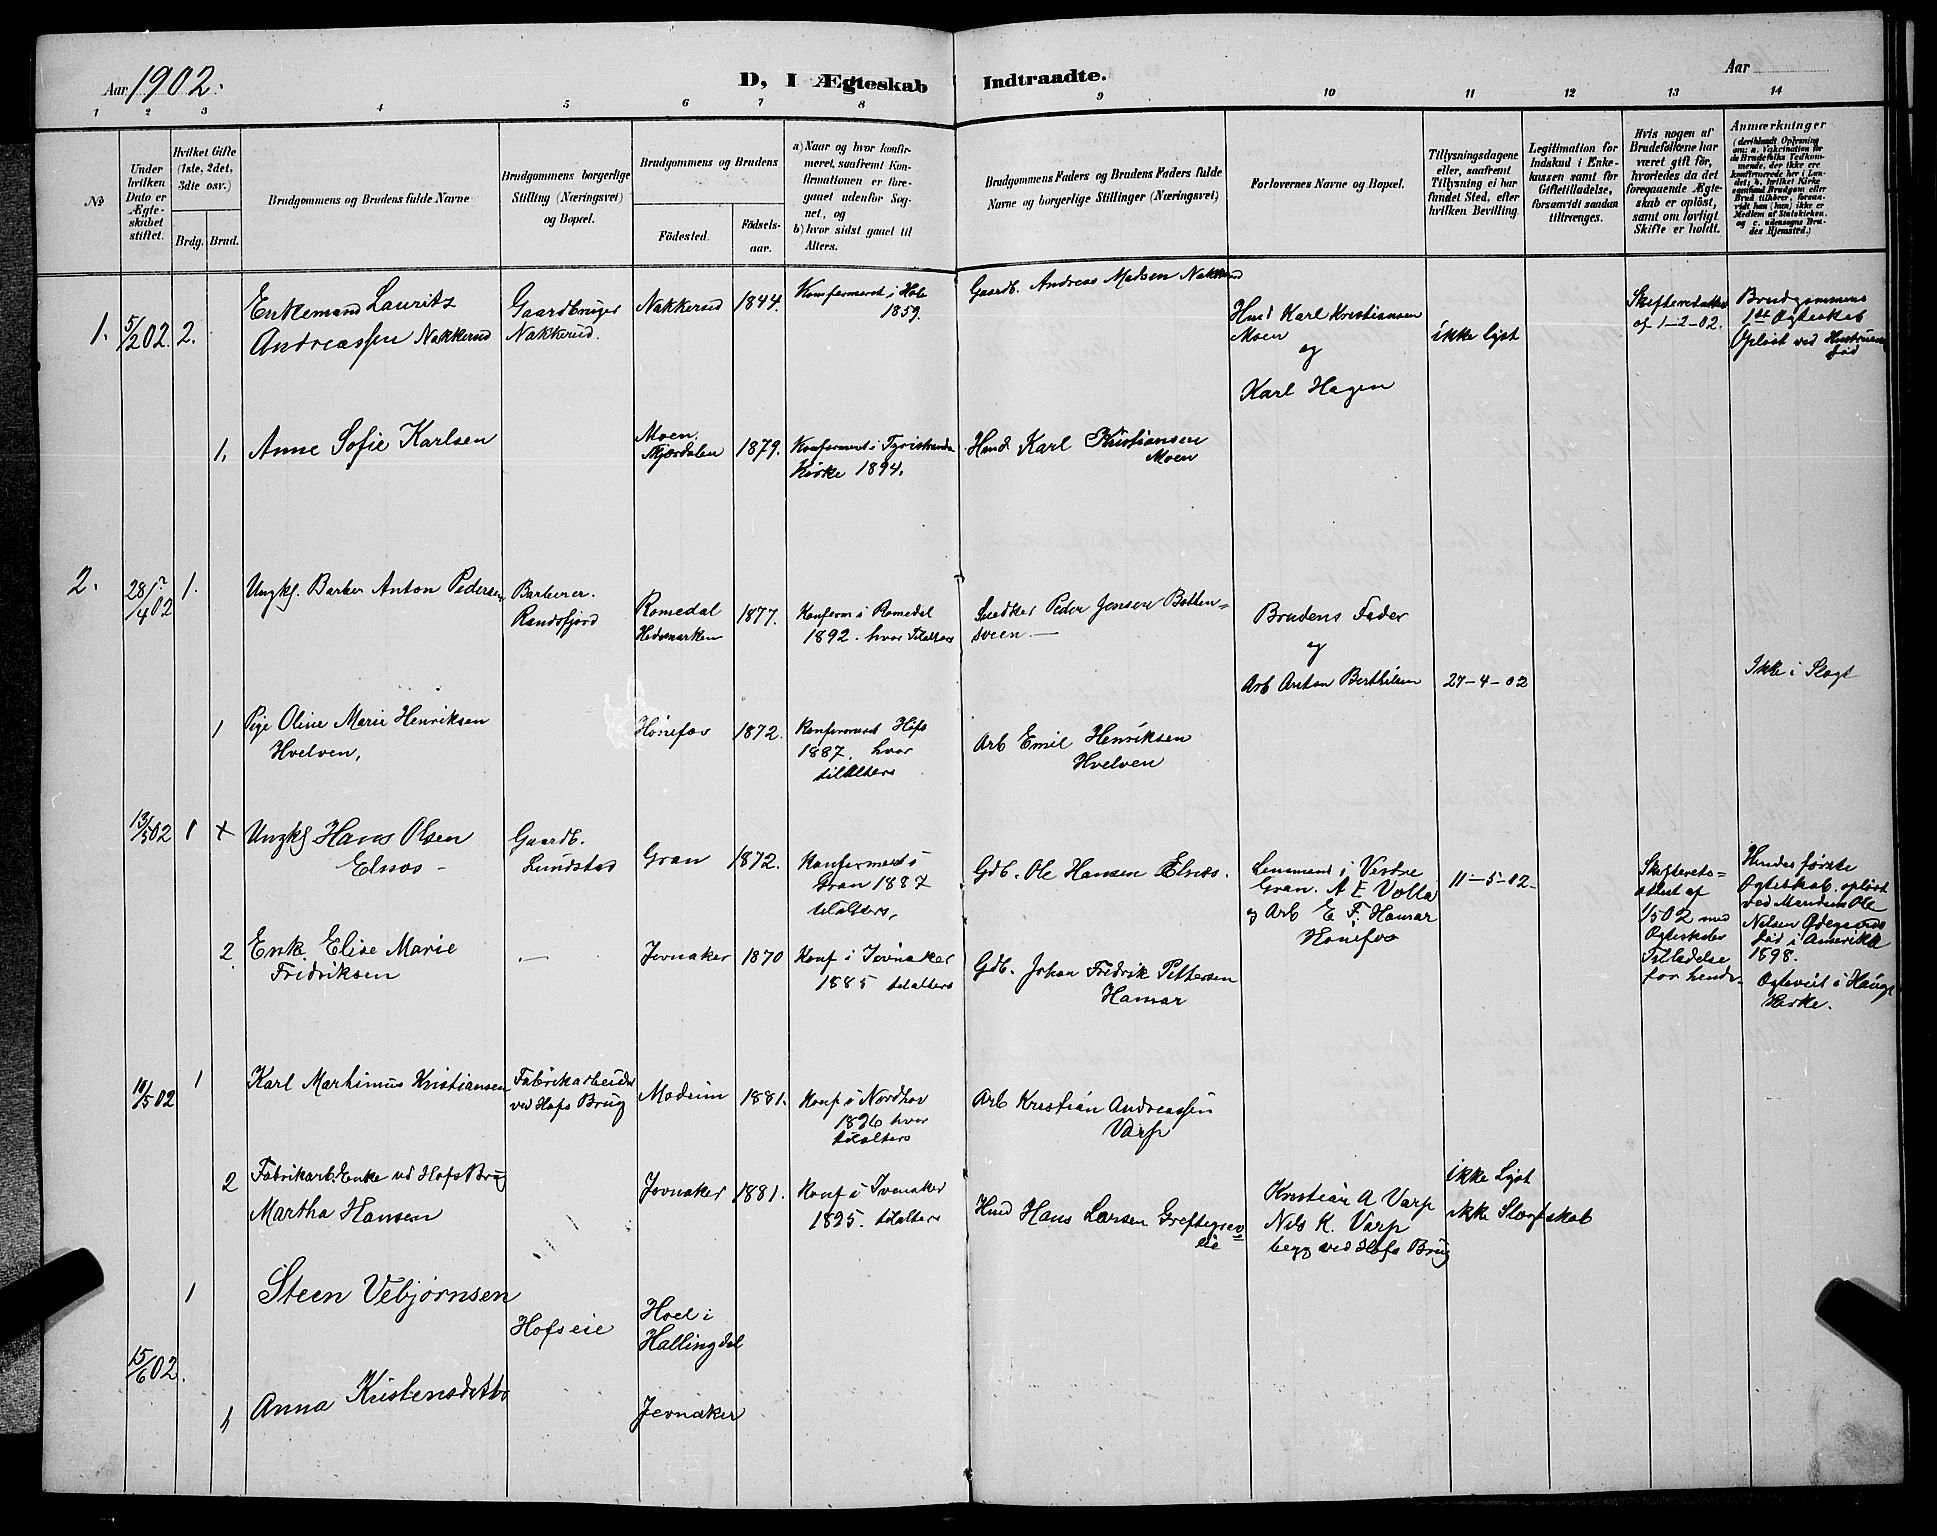 Aar 1902.
D, I Ægteskab Indtraadte.
Aar
1 2 3 4 5 6 7 8 9 10 11 12 13 14
No
Under hvilken Dato er Ægteskabet stiftet.
Hvilket Gifte (1ste, 2det, 3die osv.)
Brdg. Brud.
Brudgommens og Brudens fulde Navne
Brudgommens borgerlige Stilling (Næringsvei) og Bopæl.
Brudgommens og Brudens
Fødested.
Fødselsaar.
a) Naar og hvor konfirmeret, saafremt Konfirmationen er foregaaet udenfor Sognet, og
b) hvor sidst gaaet til Alters.
Brudgommens Faders og Brudens Faders fulde Navne og borgerlige Stillinger (Næringsvei)
Forlovernes Navne og Bopæl.
Tillysningsdagene eller, saafremt Tillysning ei har fundet Sted, efter hvilken Bevilling.
Legitimation for Indskud i Enkekassen samt for Giftetilladelse, forsaavidt saadan tiltrænges.
Hvis nogen af Brudefolkene har været gift før, hvorledes da det foregaaende Ægteskab er opløst, samt om lovligt Skifte er holdt.
Anmærkninger
(deriblandt Oplysning om: a. Vakcination for de Brudefolks Vedkommende, der ikke ere konfirmerede her i Landet; b. hvilket Kirkesamfund Brudgom eller Brud tilhører, forsaavidt han (hun) ikke er Medlem af Statskirken, og c. udensogns Brudes Hjemsted.)
1.
5/2 02.
2.
Enkemand Lauritz
Andreassen Nakkerud
Gaardbruger
Nakkerud.
Nakkerud
1844.
Konfermeret i Hole
1859.
Gaardb. Andreas Madsen Nakkerud
Husd Karl Kristiansen
Moen
og
Karl Hagen
ikke lyst
Skifteretsattest
af 1-2-02.
Brudgommens
1ste Ogteskab
Opløst ved Hustruens
Død
1.
Anne Sofie Karlsen
Moen.
Mjærdalen
1879.
Konfermeret i Tyristrands
Kirke 1894.
Husd Karl Kristiansen
Moen
2.
28/4 02
1.
Ungkf. Barber Anton Pedersen
Barberer.
Randsfjord
Romedal
Hedemarken
1877.
Konferm i Romedal
1892. hvor tilalters
Snedker Peder Jensen Botten=
sveen.
Brudens Fader
og
Arb Anton Berthilsen
27-4-02
Ikke i Slegt
1
Pige Oline Marie Henriksen
Hvelven,
Hønefos
1872.
Konfermeret Hofs
1887. hvor
tilalters
Arb Emil Henriksen
Hvelven
13/5 02
1
+
Ungkf Hans Olsen
Elnæs -
Gaardb.
Lundstad
Gran
1872.
Konfermeret i
Gran 1887
tilalters,
Gdb. Ole Hansen Elnæs.
Lensmand i Vestre
Gran. A E Volla
og Arb E F. Hamar
Hønefos
11-5-02.
Skifterets=
attest af
1/5 02 med
Ogteskabs
Tilladelse
for hende.
Hendes første
Ogteskab. opløst
ved Manden Ole
Nilsen Ødegaards
Død i Amerika
1898.
Ogteviet i Haugs
Kirke.
2.
Enk. Elise Marie
Fridriksen
Jevnaker
1870
Konf i Jevnaker
1885 tilalters
Gdb. Johan Fredrik Pettersen
Hamar
10/5 02
1
Karl Marthinus Kristiansen
Fabrikarbeider
ved Hofs Brug
Modum
1881.
Konf i Nordhov
1896 hvor
tilalters
Arb Kristian Andreassen
Varp
2
Fabrikarb. Enke ved Hofs Brug
Martha Hansen
Jevnaker
1881.
Konf i Jevnaker
1895. tilalters
Husd Hans Larsen Greftegrevs
eie
Kristian A Varp
Nils K. Varp
begge ved Hofs Brug
ikke Lyst
ikke Slægtskab
1
Steen Vebjørnsen
Hofseie
Hoel i
Hallingdal
15/6 02.
1
Anna Kristensdatter
Jevnaker